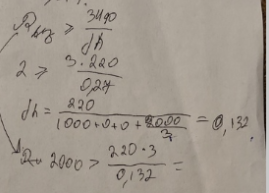 ≥ 3U₀
Jh
2 ≥ 3·220
0,27
Jh = 220
1000+0+0+2000
3
= 0,132
2000 > 220·3
0,132
=